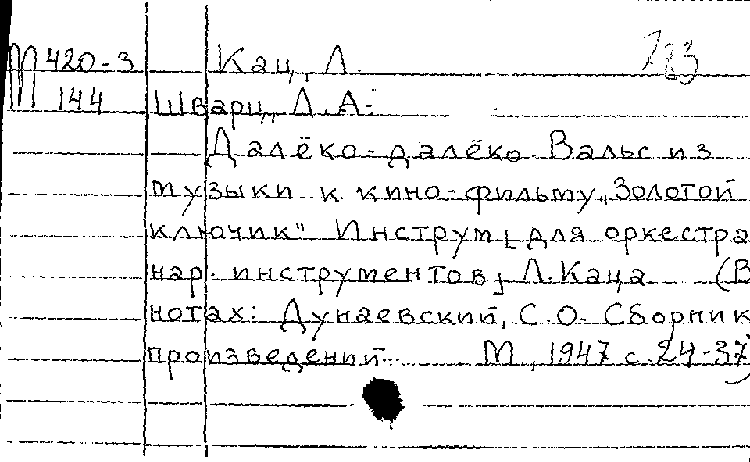 М 420-3 Кац, Л. 123
144 Шварц, Л. А.
Далёко-далёко Вальс из
музыки к кино-фильму „Золотой
ключик" Инструм[ для оркестра
нар. инструментов] Л. Каца (В
нотах: Дунаевский, С.О. Сборник
произведений М, 1947 с. 24-37)